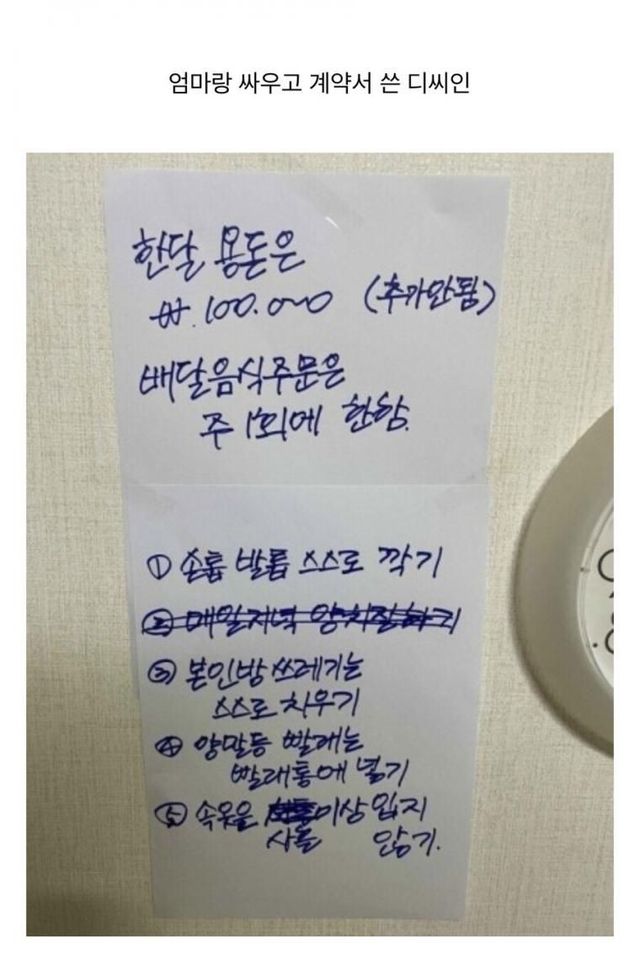 엄마랑 싸우고 계약서 쓴 디씨인
한달 용돈은
₩.100.000 (추가안됨)
배달음식주문은
주 1회에 한함.
① 손톱 발톱 스스로 깍기
② 매일저녁 양치질하기
③ 본인방 쓰레기는
스스로 치우기
④ 양말등 빨래는
빨래통에 넣기
⑤ 속옷을 이상 입지
사흘 않기.